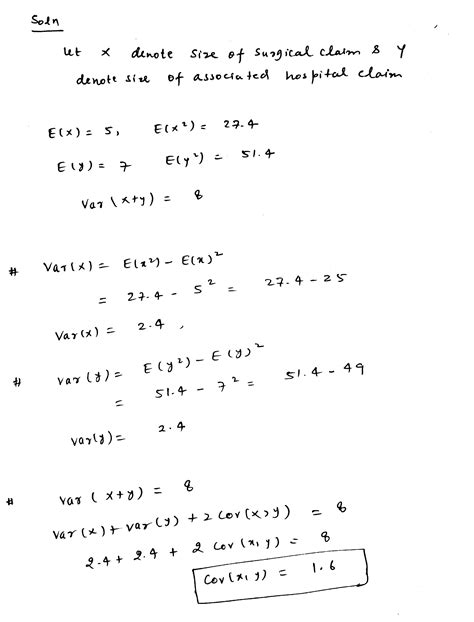 Soln
let x denote size of surgical claim & y
denote size of associated hospital claim
E(x) = 5, E(x²) = 27.4
E(y) = 7 E(y²) = 51.4
Var (x+y) = 8
# Var(x) = E(x²) - E(x)²
= 27.4 - 5² = 27.4 - 25
Var(x) = 2.4 ,
# var (y) = E(y²) - E(y)²
= 51.4 - 7² = 51.4 - 49
var(y) = 2.4
# var (x+y) = 8
var(x) + var(y) + 2 cov(x,y) = 8
2.4 + 2.4 + 2 cov(x, y) = 8
cov(x, y) = 1.6